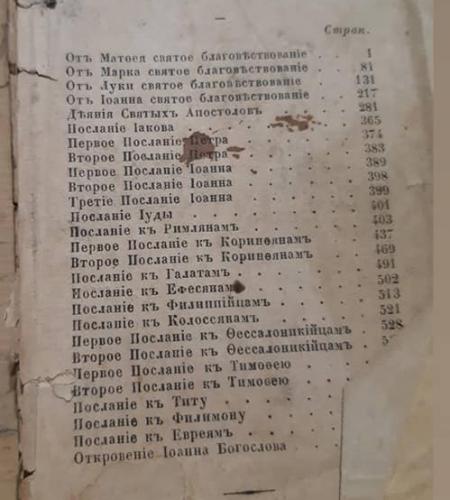 Стран.
Отъ Матѳея святое благовѣствованіе . . 1
Отъ Марка святое благовѣствованіе . . 81
Отъ Луки святое благовѣствованіе . . 131
Отъ Іоанна святое благовѣствованіе . . 217
Дѣянія Святыхъ Апостоловъ . . . 281
Посланіе Іакова . . . 365
Первое Посланіе Петра . . . 374
Второе Посланіе Петра . . . 383
Первое Посланіе Іоанна . . . 389
Второе Посланіе Іоанна . . . 398
Третіе Посланіе Іоанна . . . 399
Посланіе Іуды . . . 401
Посланіе къ Римлянамъ . . . 403
Первое Посланіе къ Коринѳянамъ . . . 437
Второе Посланіе къ Коринѳянамъ . . . 469
Посланіе къ Галатамъ . . . 491
Посланіе къ Ефесянамъ . . . 502
Посланіе къ Филиппійцамъ . . . 513
Посланіе къ Колоссянамъ . . . 521
Первое Посланіе къ Ѳессалоникійцамъ . 528
Второе Посланіе къ Ѳессалоникійцамъ .
Первое Посланіе къ Тимоѳею . . .
Второе Посланіе къ Тимоѳею . . .
Посланіе къ Титу . . .
Посланіе къ Филимону . . .
Посланіе къ Евреямъ . . .
Откровеніе Іоанна Богослова . .